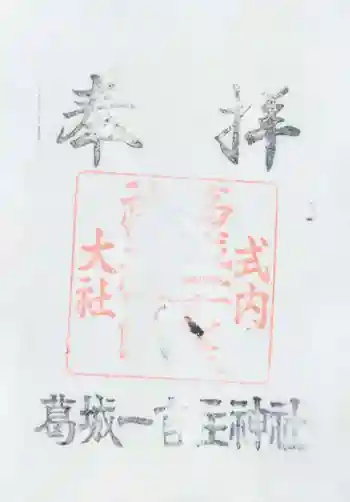 奉拝
式内
大社
葛城一言主神社